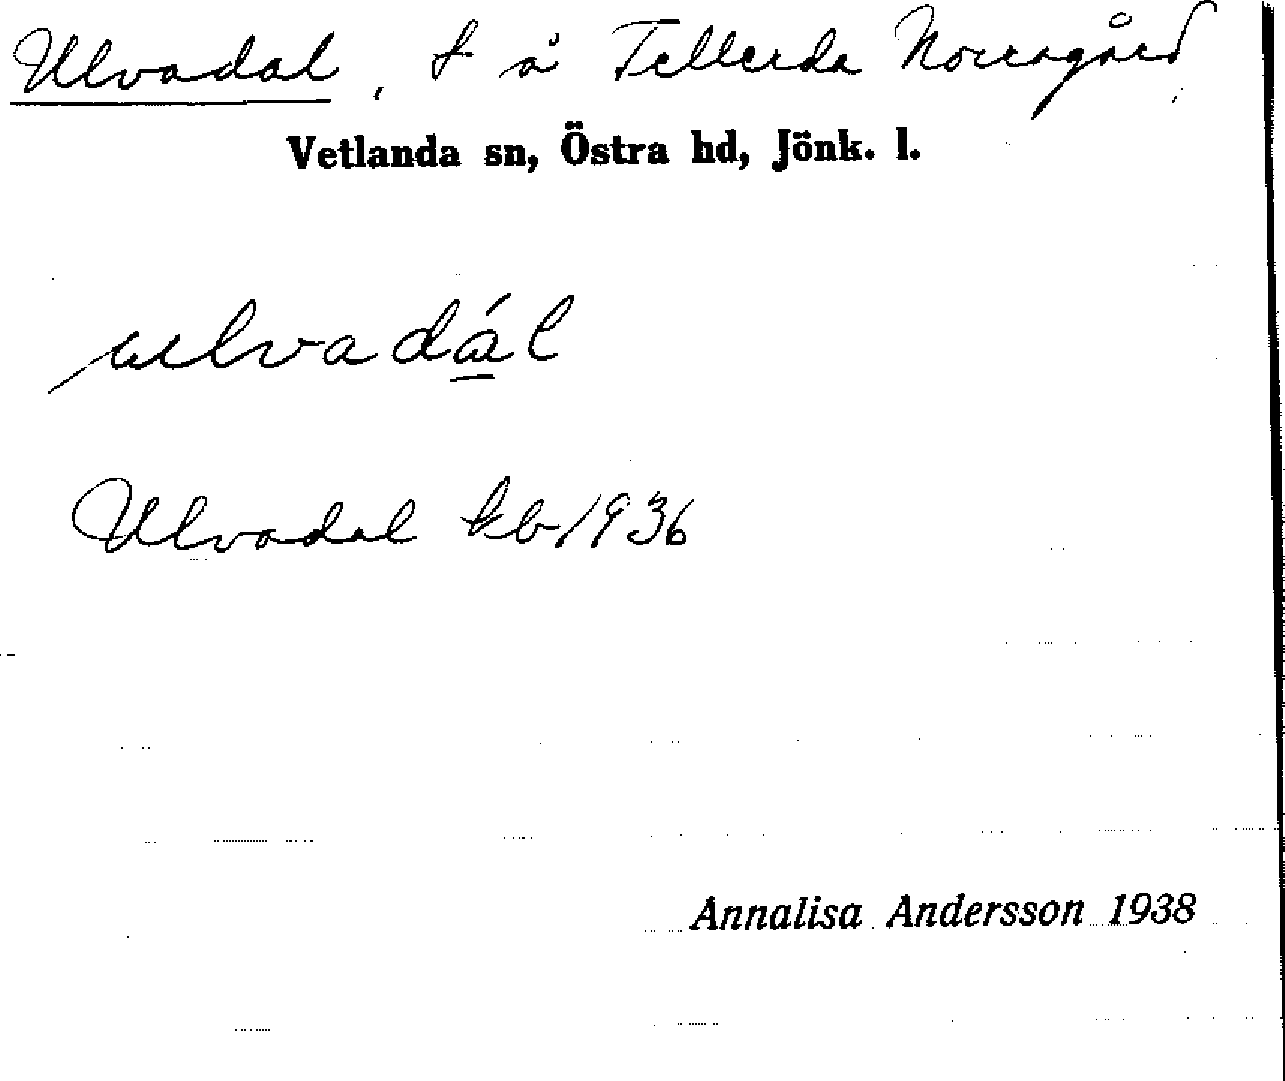 Ulvadal, t å Tellerda Norregård
Vetlanda sn, Östra hd, Jönk. l.
ulvadál
Ulvadal kb 1936
Annalisa Andersson 1938